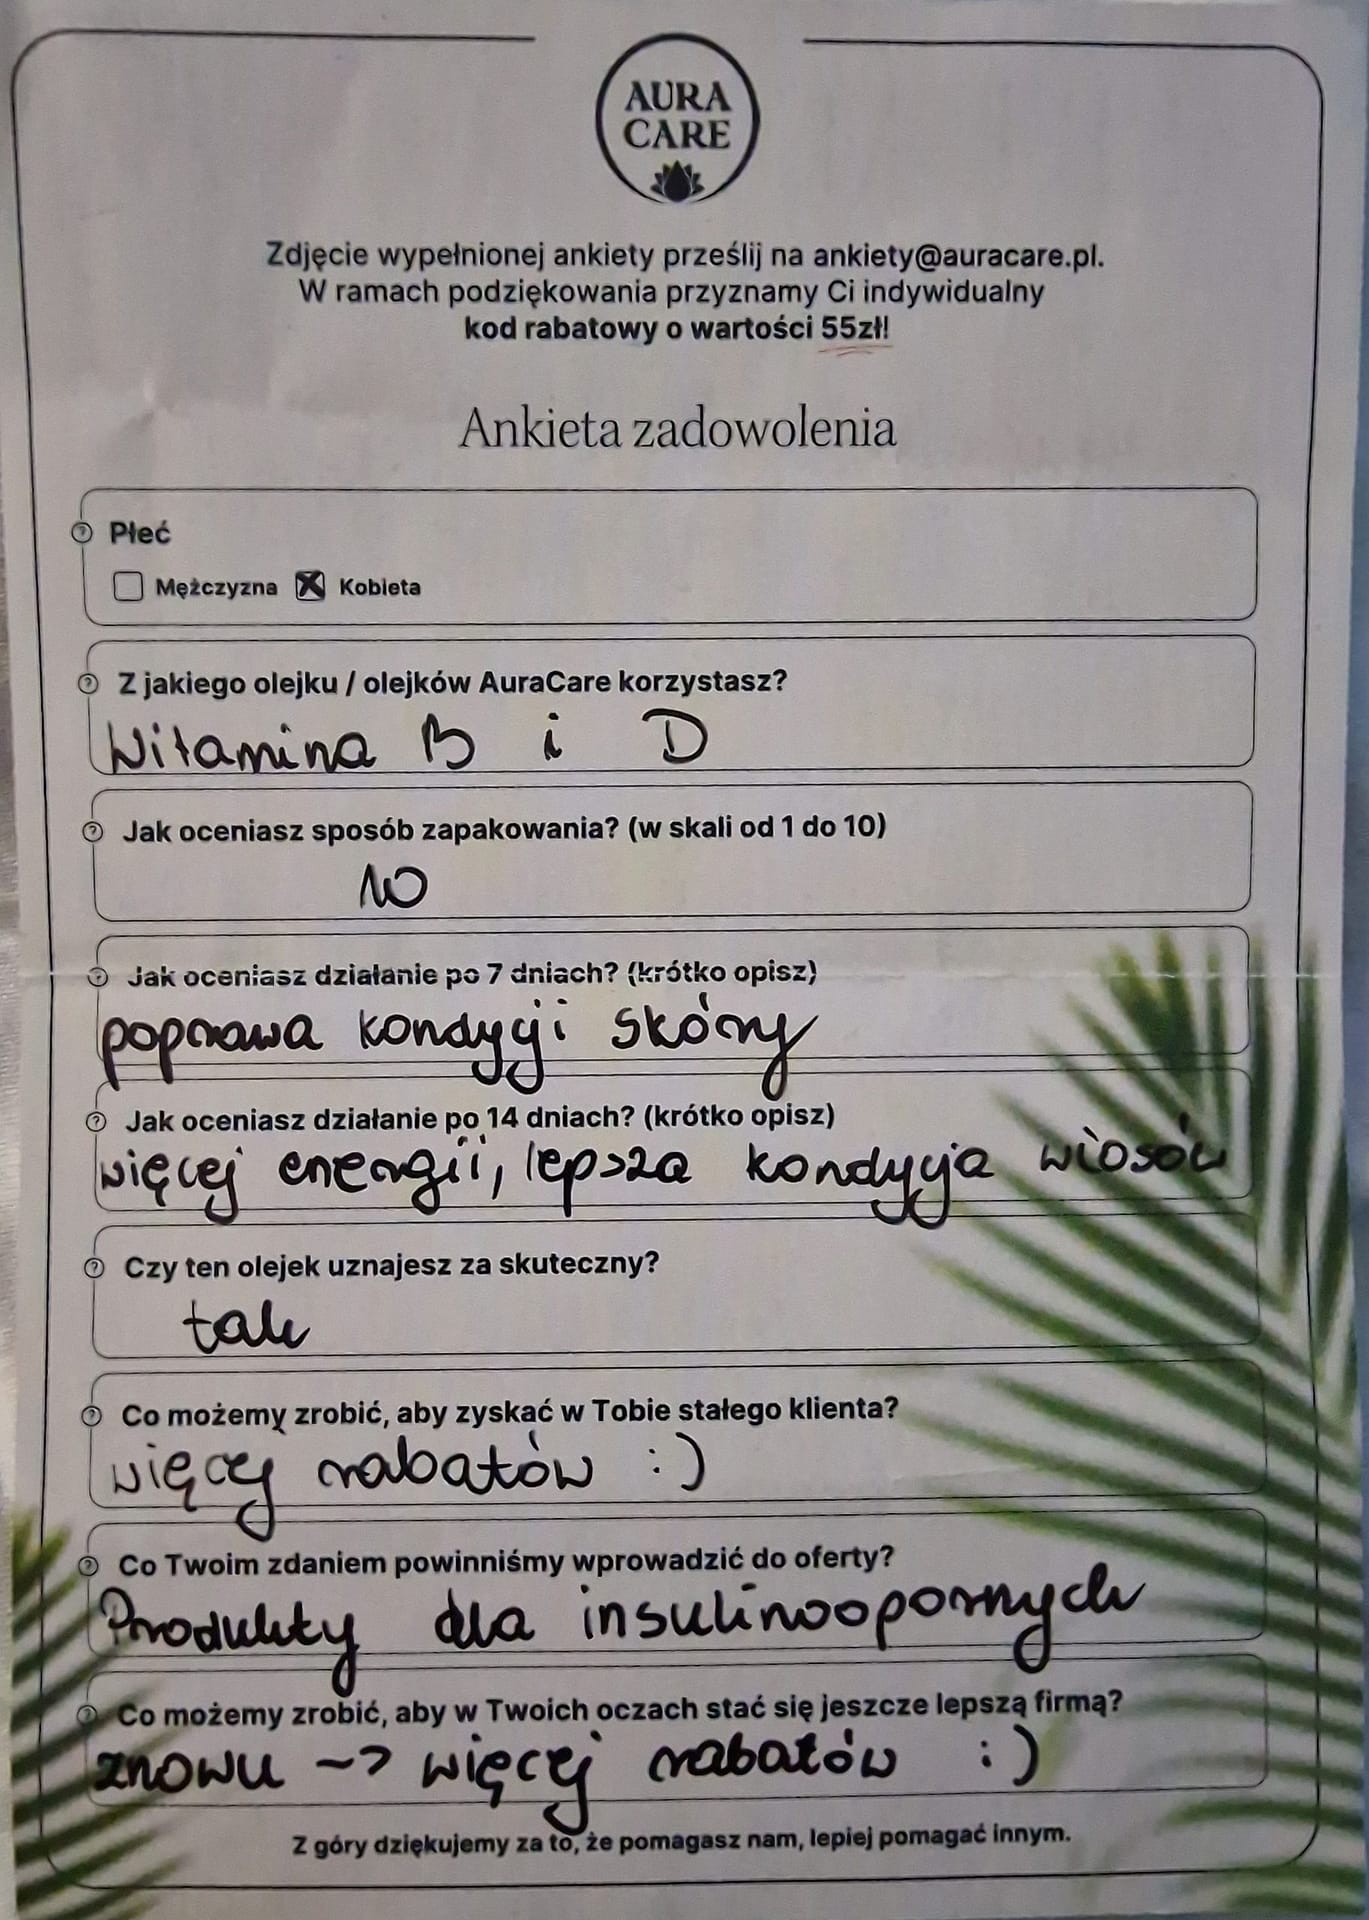 AURA
CARE
Zdjęcie wypełnionej ankiety prześlij na ankiety@auracare.pl.
W ramach podziękowania przyznamy Ci indywidualny
kod rabatowy o wartości 55zł!
Ankieta zadowolenia
Płeć
Mężczyzna Kobieta
Z jakiego olejku / olejków AuraCare korzystasz?
Witamina B i D
Jak oceniasz sposób zapakowania? (w skali od 1 do 10)
10
Jak oceniasz działanie po 7 dniach? (krótko opisz)
poprawa kondycji skóry
Jak oceniasz działanie po 14 dniach? (krótko opisz)
więcej energii, lepsza kondycja włosów
Czy ten olejek uznajesz za skuteczny?
tak
Co możemy zrobić, aby zyskać w Tobie stałego klienta?
więcej rabatów :)
Co Twoim zdaniem powinniśmy wprowadzić do oferty?
Produkty dla insulinoopornych
Co możemy zrobić, aby w Twoich oczach stać się jeszcze lepszą firmą?
znowu -> więcej rabatów :)
Z góry dziękujemy za to, że pomagasz nam, lepiej pomagać innym.